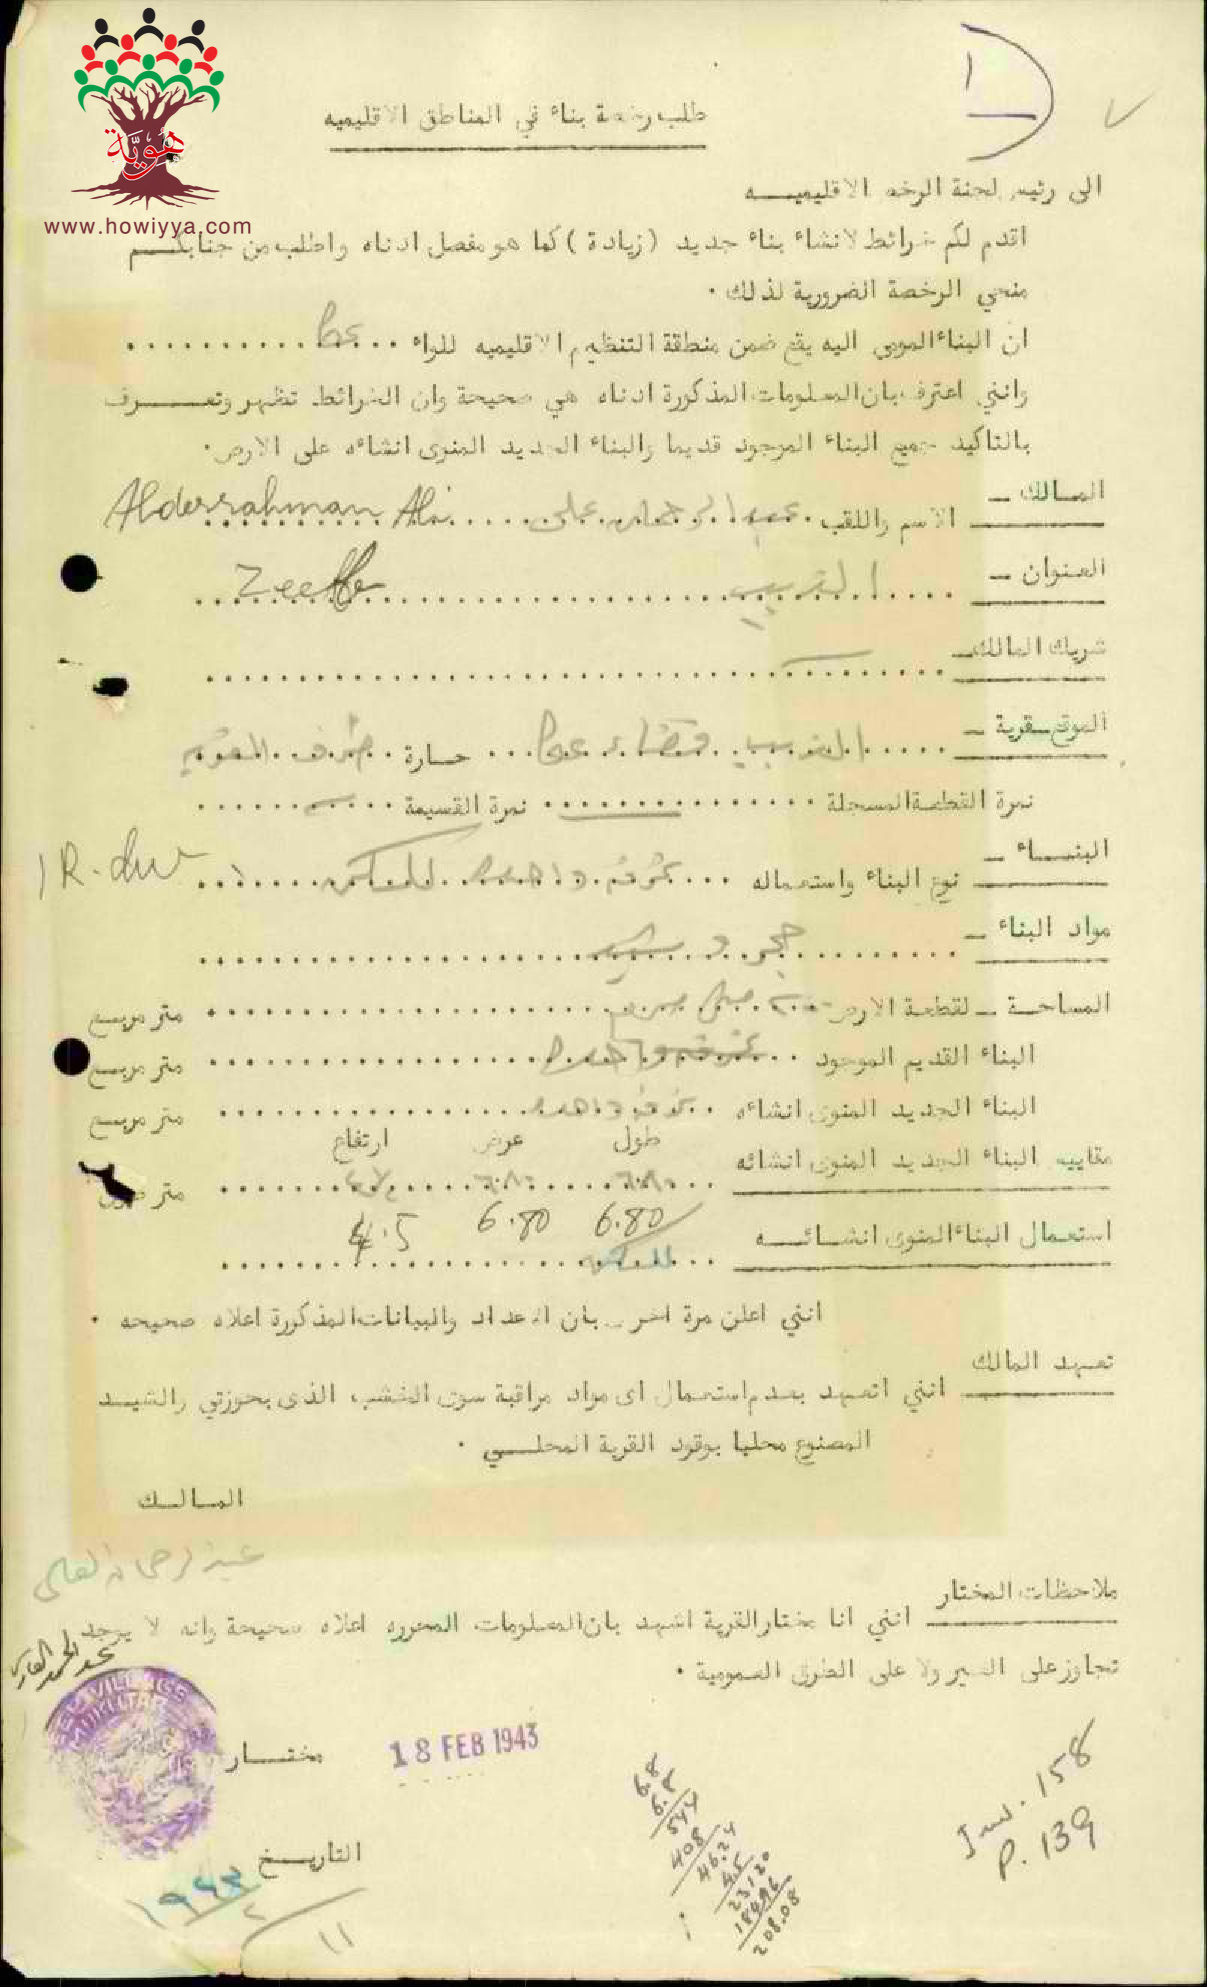 هوية
www.howiyya.com
طلب رخصة بناء في المناطق الاقليميه
الى رئيس لجنة الرخص الاقليميـــه
اقدم لكم خرائط لانشاء بناء جديد (زيادة) كما هو مفصل ادناه واطلب من جنابكـــم
منحي الرخصة الضرورية لذلك ٠
ان البناء المومى اليه يقع ضمن منطقة التنظيم الاقليميه للواء عكا
وانني اعترف بان المعلومات المذكورة ادناه هي صحيحة وان الخرائط تظهر وتعـــرف
بالتاكيد جميع البناء الموجود قديما والبناء الجديد المنوى انشاءه على الارض ٠
المالك – الاسم واللقب عبد الرحمن علي Abderrahman Ali
العنوان – الزيب Zeeb
شريك المالك –
الموقع – قرية – الزيب قضاء عكا حارة
نمرة القطعة المسجلة نمرة القسيمة
البنـــاء – نوع البناء واستعماله غرفه واحده للسكن ١ 1 R.
مواد البناء – حجر و شيد
المساحـة – لقطعة الارض متر مربع
البناء القديم الموجود متر مربع
البناء الجديد المنوى انشاءه غرفه واحده متر مربع
طول عرض ارتفاع
مقاييس البناء الجديد المنوى انشائه ٦٫٨٠ ٦٫٨٠ متر
6.80 6.80 4.5
استعمال البناء المنوى انشائـــه للسكن
انني اعلن مرة اخرى بان الاعداد والبيانات المذكورة اعلاه صحيحه ٠
تعهد المالك انني اتعهد بعدم استعمال اى مواد مراقبة سوى الخشب الذى بحوزتي والشيـد
المصنوع محليا بوقود القرية المحلـــي ٠
المـالـك
عبد الرحمان العلي
ملاحظات المختار انني انا مختار القرية اشهد بان المعلومات المحرره اعلاه صحيحة وانه لا يوجد
تجاوز على السير ولا على الطرق العمومية ٠
VILLAGE
MUKHTAR
مختـــار
18 FEB 1943
التاريــخ
١١/٢/١٩٤٣
6.8
6.8
544
408
46.24
4.5
23120
18496
208.08
158
P. 139